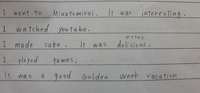 I went to Minatomirai. It was interesting.
I watched youtube.
I made cake. It was delicious.
I played games.
It was a good Golden Week vacation